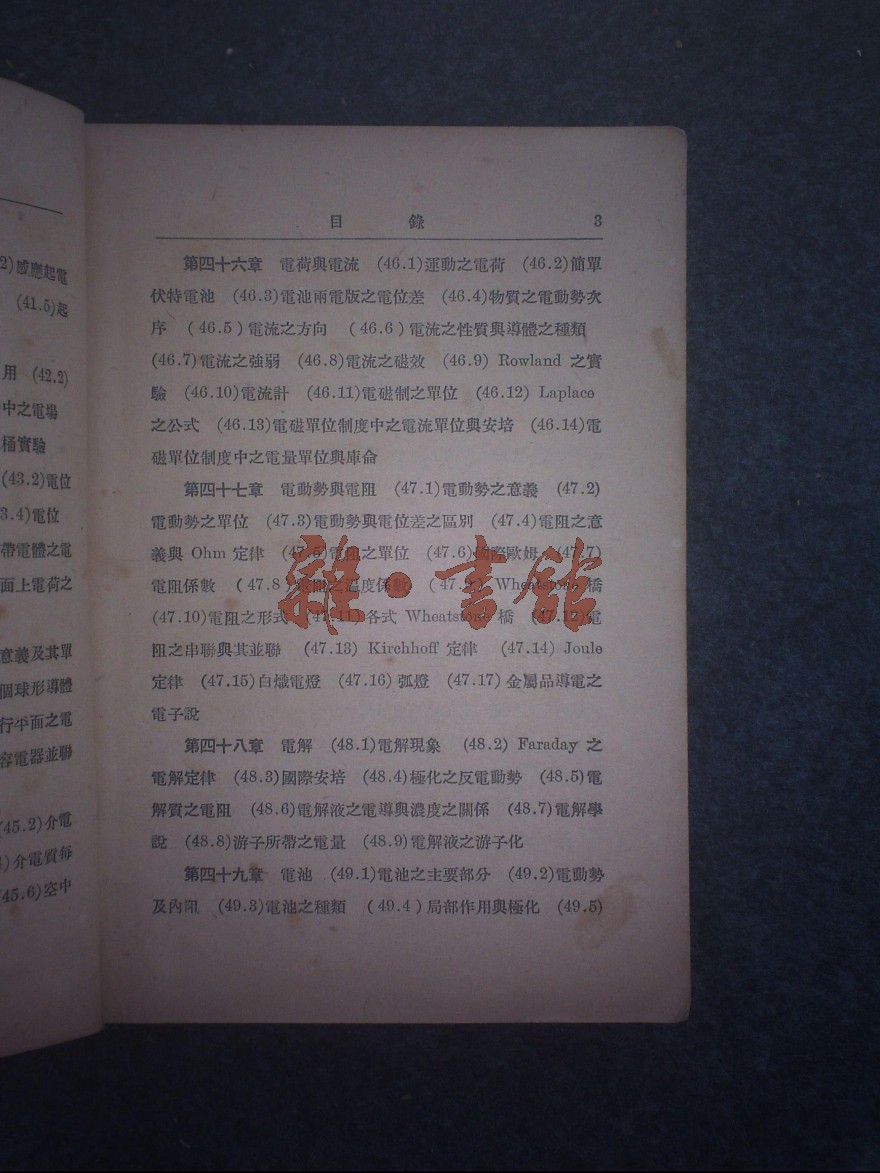 2)感應起電
(41.5)起
用 (42.2)
中之電場
桶實驗
(43.2)電位
3.4)電位
帶電體之電
面上電荷之
意義及其單
個球形導體
行平面之電
容電器並聯
(45.2)介電
)介電質每
(45.6)空中
目 錄 3
第四十六章 電荷與電流 (46.1)運動之電荷 (46.2)簡單
伏特電池 (46.3)電池兩電版之電位差 (46.4)物質之電動勢次
序 (46.5)電流之方向 (46.6)電流之性質與導體之種類
(46.7)電流之強弱 (46.8)電流之磁效 (46.9) Rowland 之實
驗 (46.10)電流計 (46.11)電磁制之單位 (46.12) Laplace
之公式 (46.13)電磁單位制度中之電流單位與安培 (46.14)電
磁單位制度中之電量單位與庫侖
第四十七章 電動勢與電阻 (47.1)電動勢之意義 (47.2)
電動勢之單位 (47.3)電動勢與電位差之區別 (47.4)電阻之意
義與 Ohm 定律 (47.5)電阻之單位 (47.6)國際歐姆 (47.7)
電阻係數 (47.8)電阻之溫度係數 (47.9) Wheatstone 橋
(47.10)電阻之形式 (47.11)各式 Wheatstone 橋 (47.12)電
阻之串聯與其並聯 (47.13) Kirchhoff 定律 (47.14) Joule
定律 (47.15)白熾電燈 (47.16)弧燈 (47.17)金屬品導電之
電子說
第四十八章 電解 (48.1)電解現象 (48.2) Faraday 之
電解定律 (48.3)國際安培 (48.4)極化之反電動勢 (48.5)電
解質之電阻 (48.6)電解液之電導與濃度之關係 (48.7)電解學
說 (48.8)游子所帶之電量 (48.9)電解液之游子化
第四十九章 電池 (49.1)電池之主要部分 (49.2)電動勢
及內阻 (49.3)電池之種類 (49.4)局部作用與極化 (49.5)
雜·書館